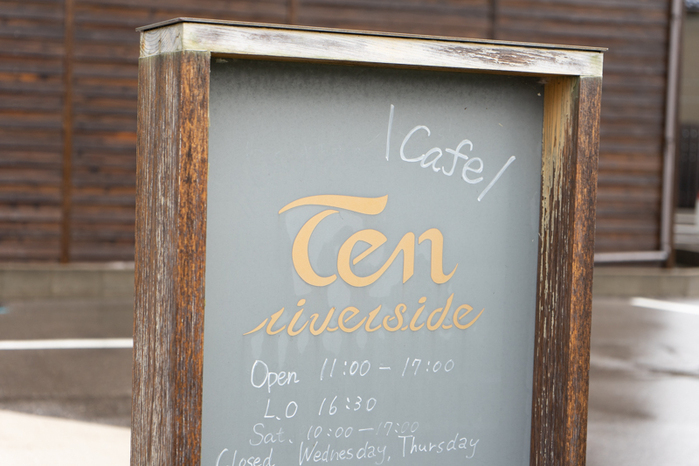 \Cafe/
Ten
riverside
Open 11:00-17:00
L.O 16:30
Sat. 10:00-17:00
Closed Wednesday, Thursday